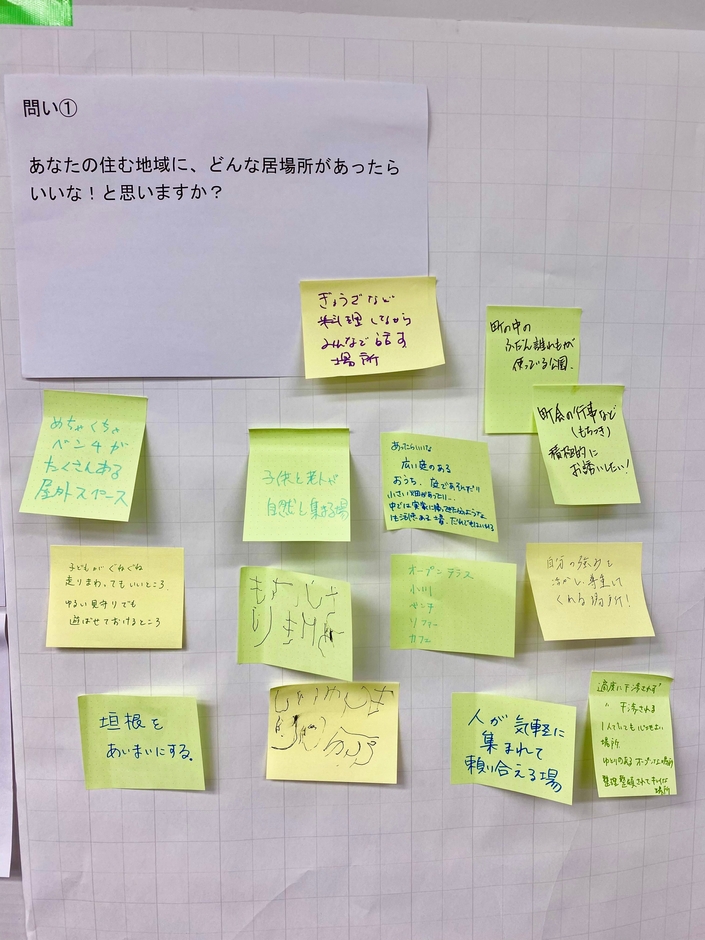 問い①
あなたの住む地域に、どんな居場所があったら
いいな！と思いますか？
ぎょうざなど
料理しながら
みんなで話す
場所
町の中の
ふだん誰れもが
使っている公園.
町会の行事など
(もちつき)
積極的に
お誘いしたい!
めちゃくちゃ
ベンチが
たくさんある
屋外スペース
子供と老人が
自然と集まる場
あったらいいな
広い庭のある
おうち、庭であそんだり
小さい畑があったり…
中では実家に帰ってきたかのような
生活感ある場、だれでもはいれる
子どもがぐねぐね
走りまわってもいいところ
ゆるい見守りでも
遊ばせておけるところ
オープンテラス
小川
ベンチ
ソファー
カフェ
自分の強みを
活かし、尊重して
くれる場所!
垣根を
あいまいにする.
人が気軽に
集まれて
頼り合える場
適度に干渉されず
〃 干渉される
1人でいても心地よい
場所
ゆとりのあるオープンな場所
整理整頓されてキレイな
場所